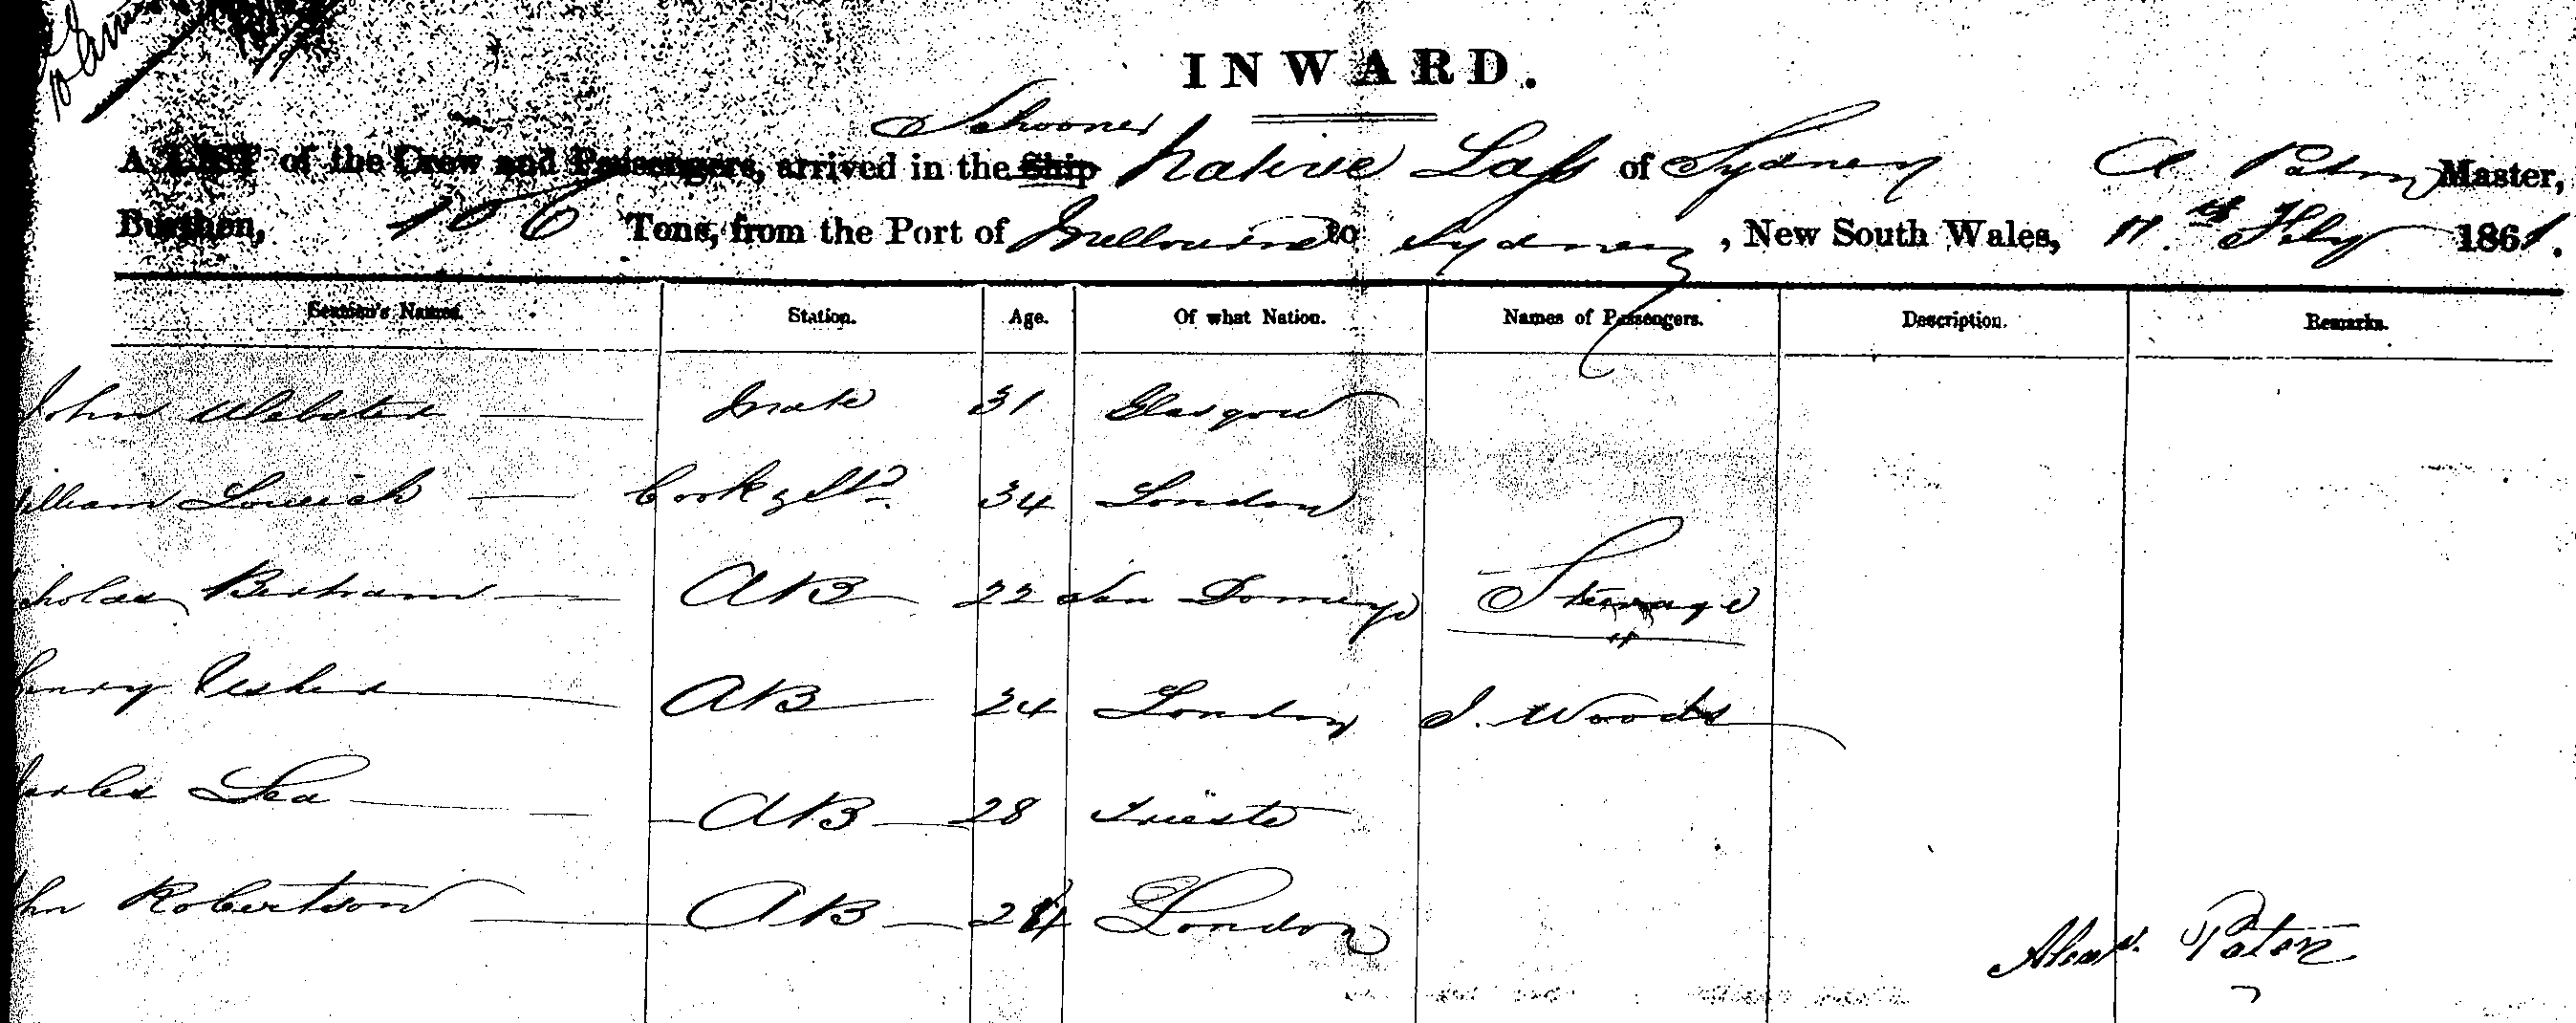 INWARD.
Schooner
A LIST of the Crew and Passengers, arrived in the Ship Native Lass of Sydney A Paton Master,
Burthen, 106 Tons, from the Port of Melbourne to Sydney, New South Wales, 17th Feby 1861.
Seamen's Names. Station. Age. Of what Nation. Names of Passengers. Description. Remarks.
John Webster Mate 31 Glasgow
illiam Lowick Cook & Std 34 London
icholas Bertram AB 22 San Domingo Steerage
Henry Usher AB 24 London J. Woods
harles Lea AB 28 Trieste
ohn Robertson AB 24 London
Alexr. Paton